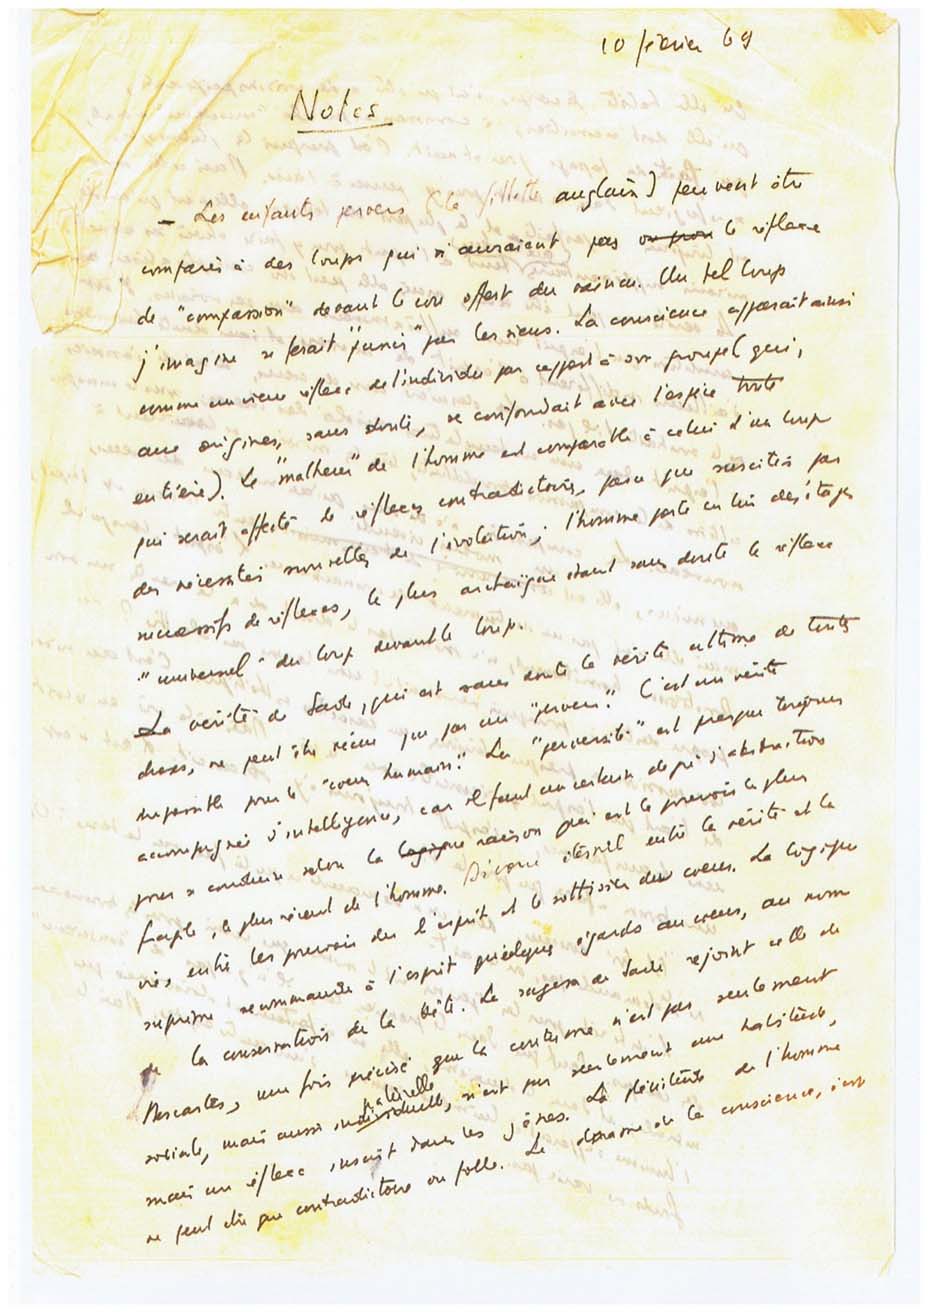 10 février 69
Notes
– Les enfants pervers (la fillette anglaise) peuvent être
comparés à des loups qui n'auraient pas le réflexe
de "compassion" devant le cou offert du vaincu. Un tel loup
j'imagine se ferait "punir" par les siens. La conscience apparaît ainsi
comme un vieux réflexe de l'individu par rapport à son groupe (qui,
aux origines, sans doute, se confondait avec l'espèce toute
entière). Le "malheur" de l'homme est comparable à celui d'un loup
qui serait affecté de réflexes contradictoires, parce que suscités par
des nécessités nouvelles de l'évolution; l'homme porte en lui des étages
successifs de réflexes, le plus archaïque étant sans doute le réflexe
"universel" du loup devant le loup.
La vérité de Sade, qui est sans doute la vérité ultime de toutes
choses, ne peut être vécue que par un "pervers". C'est une vérité
impossible pour le "cœur humain". La "perversité" est presque toujours
accompagnée d'intelligence, car il faut un certain degré d'abstraction
pour se conduire selon la raison qui est le pouvoir le plus
fragile, le plus récent de l'homme. Divorce éternel entre la vérité et la
vie, entre les pouvoirs de l'esprit et le du cœur. La logique
suprême recommande à l'esprit quelques égards au cœur, au nom
de la conservation de la bête. La sagesse de Sade rejoint celle de
Descartes, une fois précisé que la coutume n'est pas seulement
sociale, mais aussi naturelle, n'est pas seulement une habitude,
mais un réflexe inscrit dans les gènes. La plénitude de l'homme
ne peut être que contradictoire ou folle. Le drame de la conscience, c'est